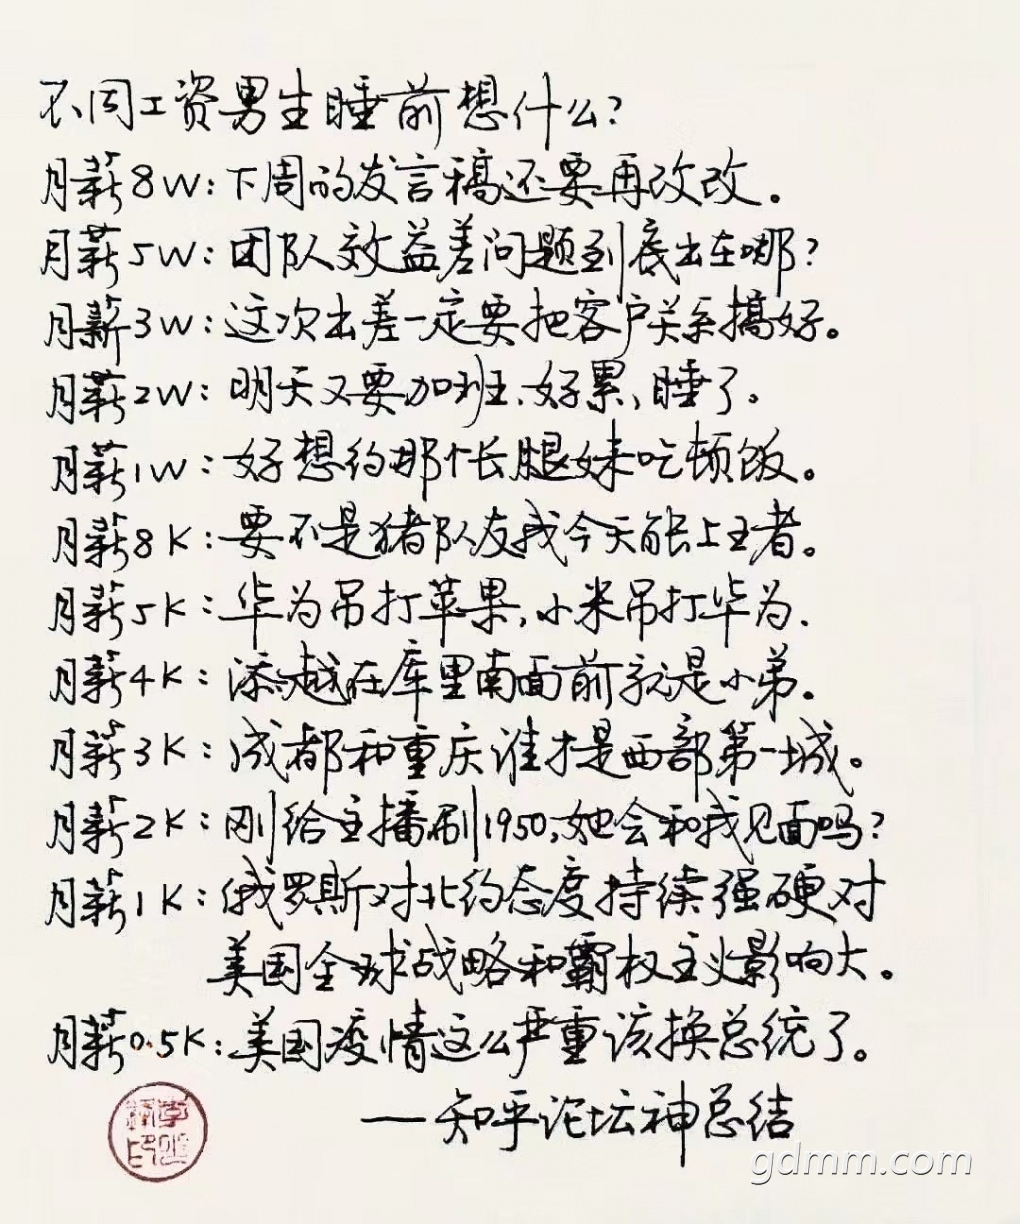 不同工资男生睡前想什么?
月薪8W:下周的发言稿还要再改改。
月薪5W:团队效益差问题到底出在哪?
月薪3W:这次出差一定要把客户关系搞好。
月薪2W:明天又要加班、好累、睡了。
月薪1W:好想约那个长腿妹吃顿饭。
月薪8K:要不是猪队友我今天能上王者。
月薪5K:华为吊打苹果,小米吊打华为.
月薪4K:添越在库里南面前就是小弟.
月薪3K:成都和重庆谁才是西部第一城。
月薪2K:刚给主播刷1950,她会和我见面吗?
月薪1K:俄罗斯对北约态度持续强硬对
美国全球战略和霸权主义影响大。
月薪0.5K:美国疫情这么严重该换总统了。
——知乎论坛神总结
gdmm.com